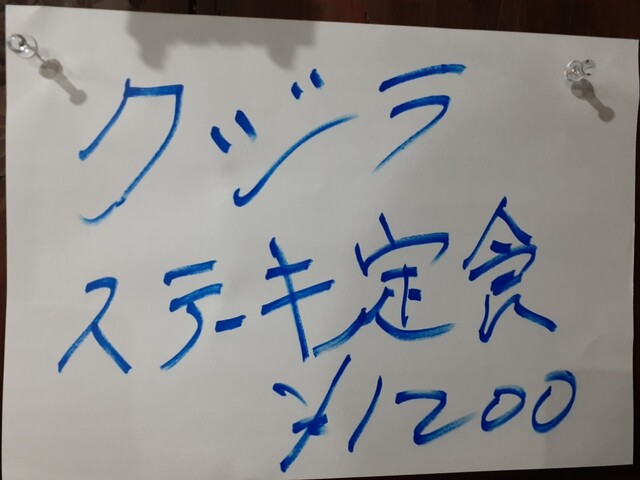 クジラ
ステーキ定食
¥1200